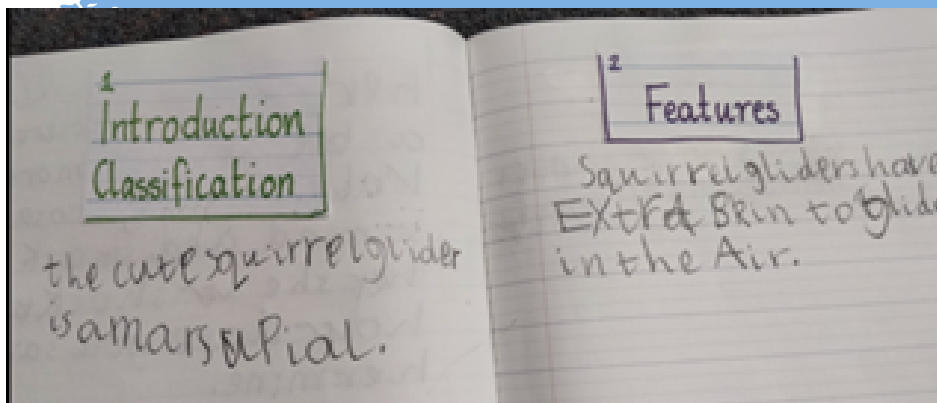 1
Introduction
Classification
the cute squirrel glider
is a marsupial.
2
Features
Squirrel gliders have
EXtra SKin to glide
in the Air.